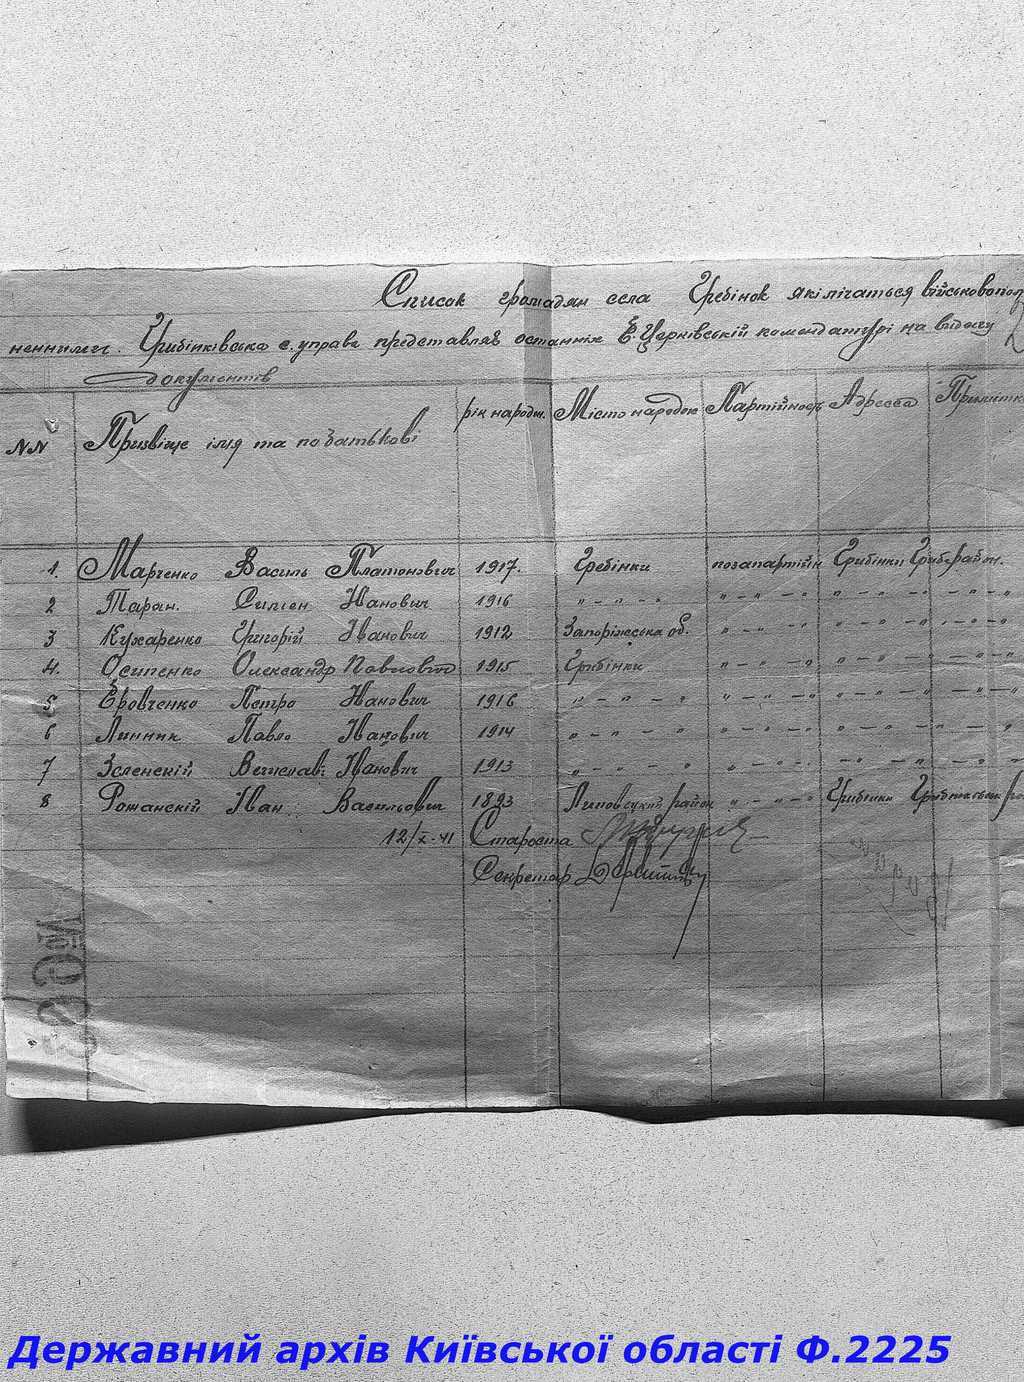 Список громадян села Гребінок які лічаться військовопол
нennими. Грибінківська с. управа представляє останніх Б. Церківській комендатурі на видачу
документів
NN Призвіще імя та по батькові рік народж. Місто народж Партійность Адресса Примітка
1. Марченко Василь Платонович 1917. Гребінки позапартійн Грибінки Гриб. район.
2 Таран. Симен Іванович 1916 " - " - " " - " - " " - " - " - "
3 Кухаренко Григорій Іванович 1912 Запоріжська об. " - " - " " - " - " - "
4. Осипенко Олександр Павлович 1915 Грибінки " - " - " " - " - " - "
5 Єровченко Петро Іванович 1916 " - " - " " - " - " " - " - " - "
6 Линник Павло Іванович 1914 " - " - " " - " - " " - " - " - "
7 Зеленскій Вечислав Іванович 1913 " - " - " " - " - " " - " - " - "
8 Рожанскій Іван Васильович 1893 район " - " - " Грибінки
12/X-41 Староста
Секретар
№
Державний архів Київської області Ф.2225